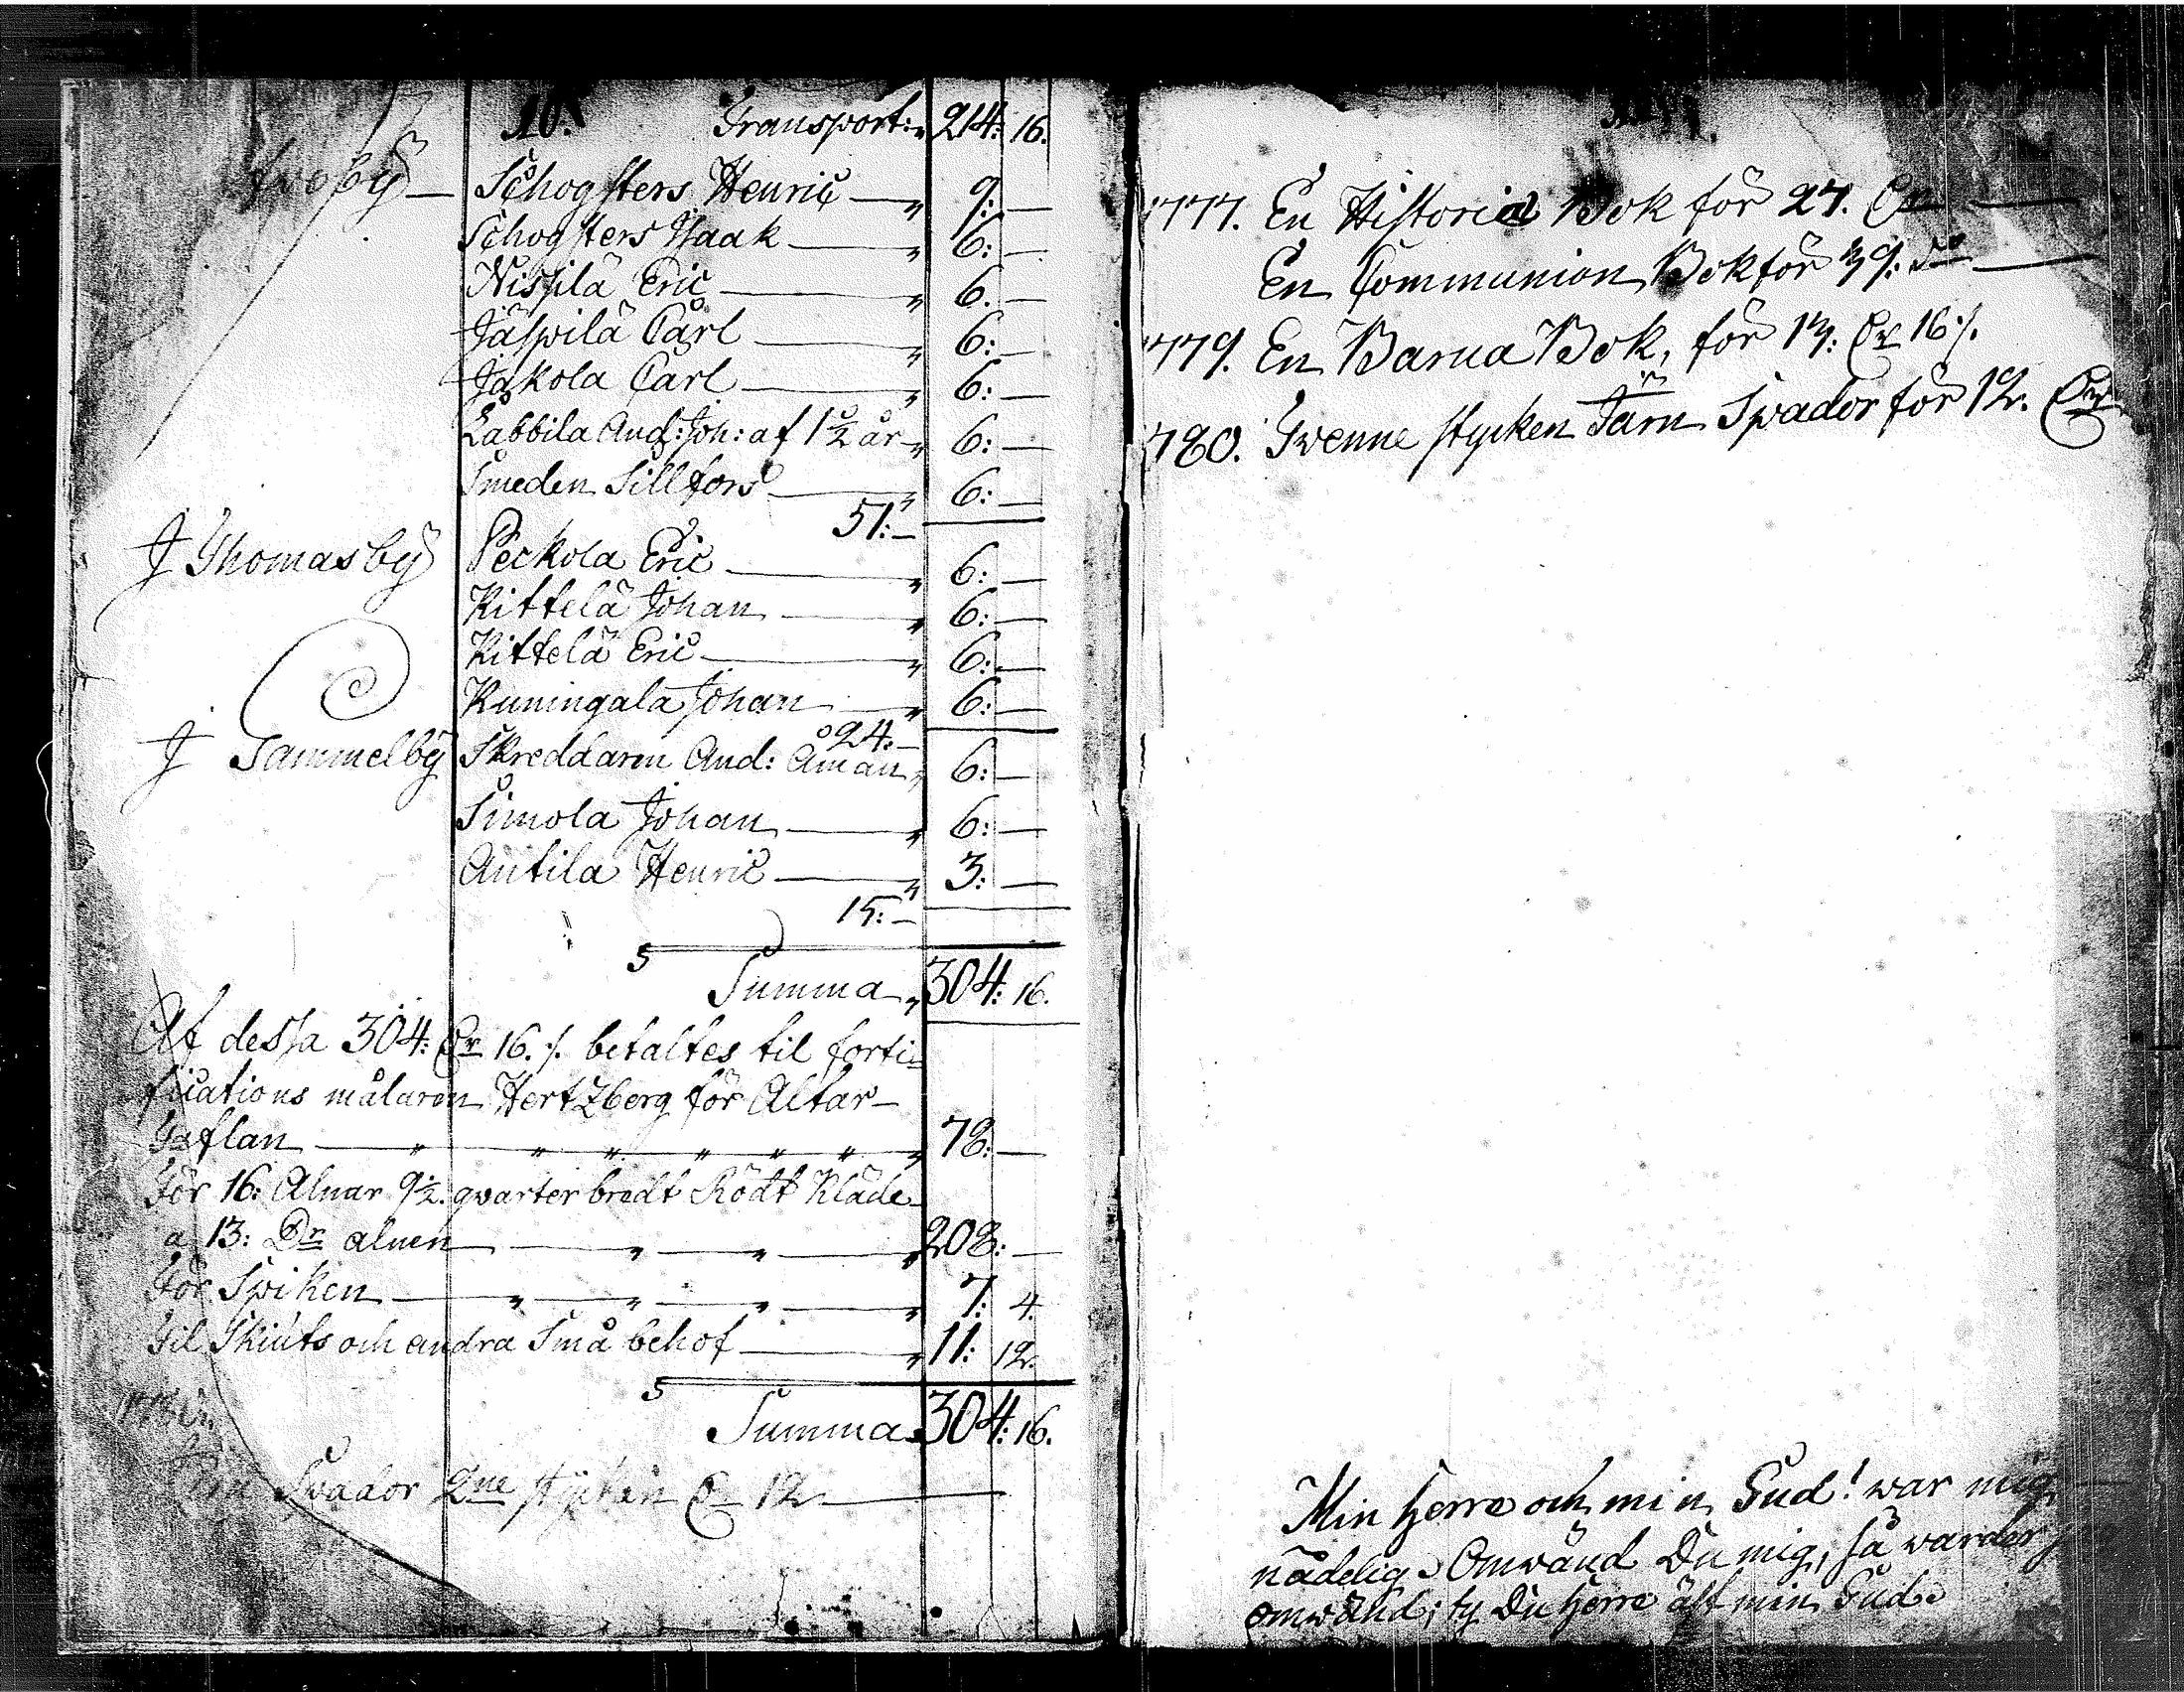 10. Transport: 214: 16.
by Schogsters Henric 9: —
Schogsters Isaak 6: —
Nissilä Eric 6. —
Jäspilä Carl 6: —
Jakola Carl 6: —
Labbila And: Joh: af 1½ år 6: —
Smeden Sillfors 6: —
51: —
J Thomasby Peckola Eric 6: —
Kittelä Johan 6: —
Kittelä Eric 6: —
Kuningala Johan 6: —
24. —
J Sammelby Skreddaren And: Åman 6: —
Simola Johan 6: —
Antila Henric 3: —
15: —
Summa 304: 16.
Af dessa 304: Dr 16. /. betaltes til forti-
fications målaren Hertzberg för Altar-
Taflan 78: —
För 16: Alnar 9½ qvarter bredt Rödt Kläde
a 13: Dr alnen 208: —
För Spiken 7: 4.
Til Skiuts och andra Små behof 11: 12.
Summa 304: 16.
Spador 2ne stycken 12
1777. En Historia Bok för 27. Dr —
En Communion Bok för 39: Dr —
1779. En Barna Bok, för 13: Dr 16 /.
1780. Tvenne stycken Järn Spador för 12. Dr
Min Herre och min Gud! war mig
nådelig. Omwänd Du mig, så warder j
omwänd; ty Du Herre äst min Gud.